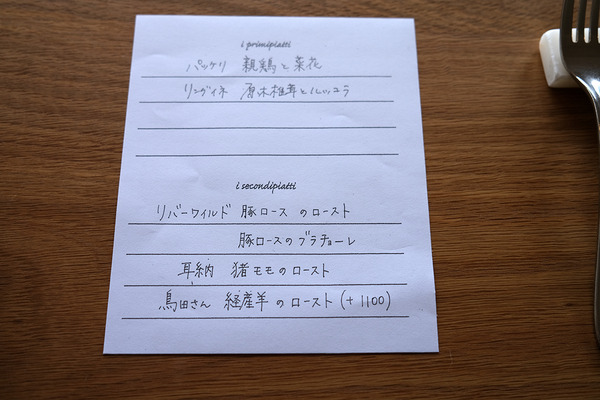 i primipiatti
パッケリ 親鶏と菜花
リングイネ 原木椎茸とルッコラ
i secondipiatti
リバーワイルド 豚ロース のロースト
豚ロースのブラチョーレ
耳納 猪モモのロースト
鳥田さん 経産羊のロースト (+1100)